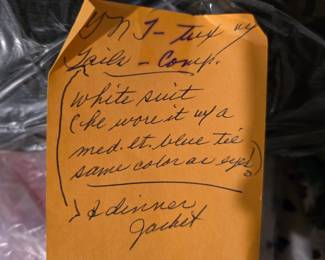 1 - Tux w/
Tails - Comp.
(White suit
(he wore it w/ a
med. lt. blue tie
same color as eyes!)
& dinner
Jacket